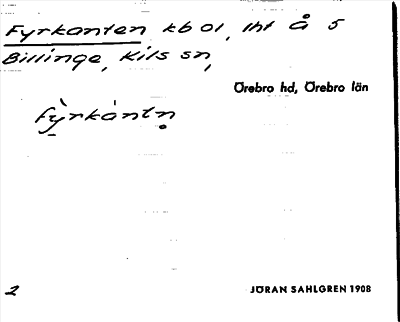 Fyrkanten kb 01, lht Å 5
Billinge, Kils sn,
Örebro hd, Örebro län
fỳrkàntn̥
2
JÖRAN SAHLGREN 1908